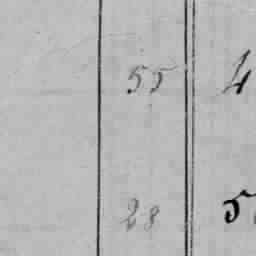 55 4
28 5